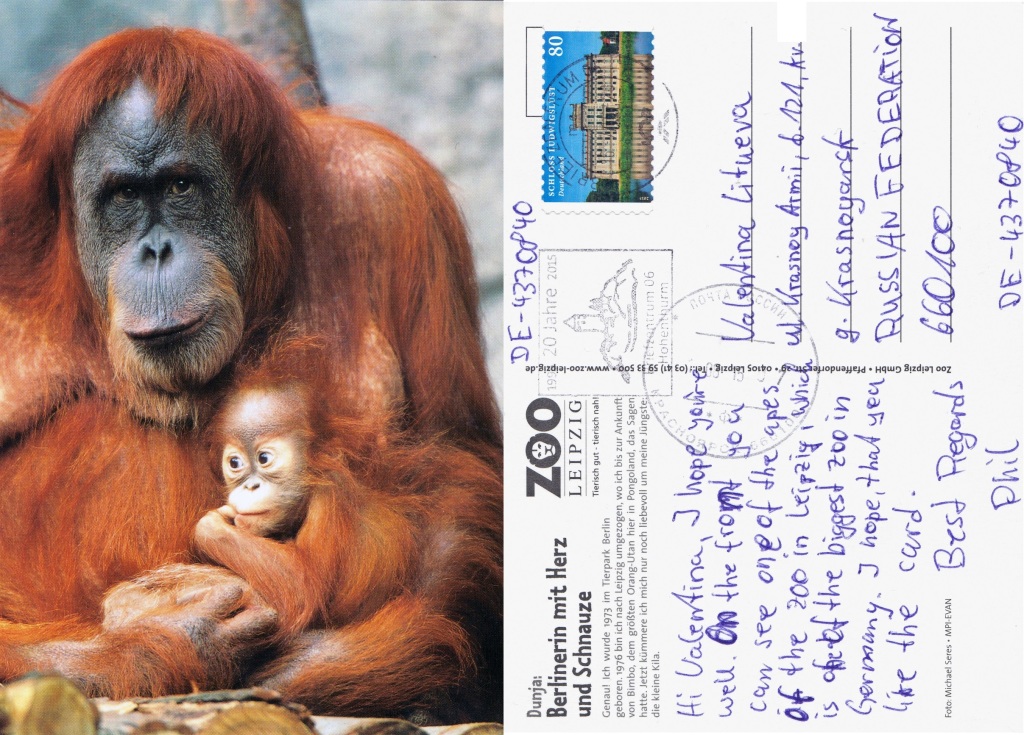 Dunja:
Berlinerin mit Herz
und Schnauze
Genau! Ich wurde 1973 im Tierpark Berlin
geboren. 1976 bin ich nach Leipzig umgezogen, wo ich bis zur Ankunft
von Bimbo, dem größten Orang-Utan hier in Pongoland, das Sagen
hatte. Jetzt kümmere ich mich nur noch liebevoll um meine Jüngste,
die kleine Kila.
ZOO
LEIPZIG
Tierisch gut - tierisch nah!
Hi Valentina, I hope you're
well. On the front you
can see one of the apes
of the zoo in Leipzig, which
is the biggest zoo in
Germany. I hope, that you
like the card.
Best Regards
Phil
Foto: Michael Seres • MPI-EVAN
Zoo Leipzig GmbH • Pfaffendorfer Str. 29 • 04105 Leipzig • Tel.: (03 41) 59 33 500 • www.zoo-leipzig.de
DE-4370840
20 Jahre 2015
Briefzentrum 06
Hohenthurm
80
SCHLOSS LUDWIGSLUST
Deutschland
ПОЧТА РОССИИ
Valentina Litueva
ul Krasnoy Armii, d 121, kv.
g. Krasnoyarsk
RUSSIAN FEDERATION
660100
DE-4370840